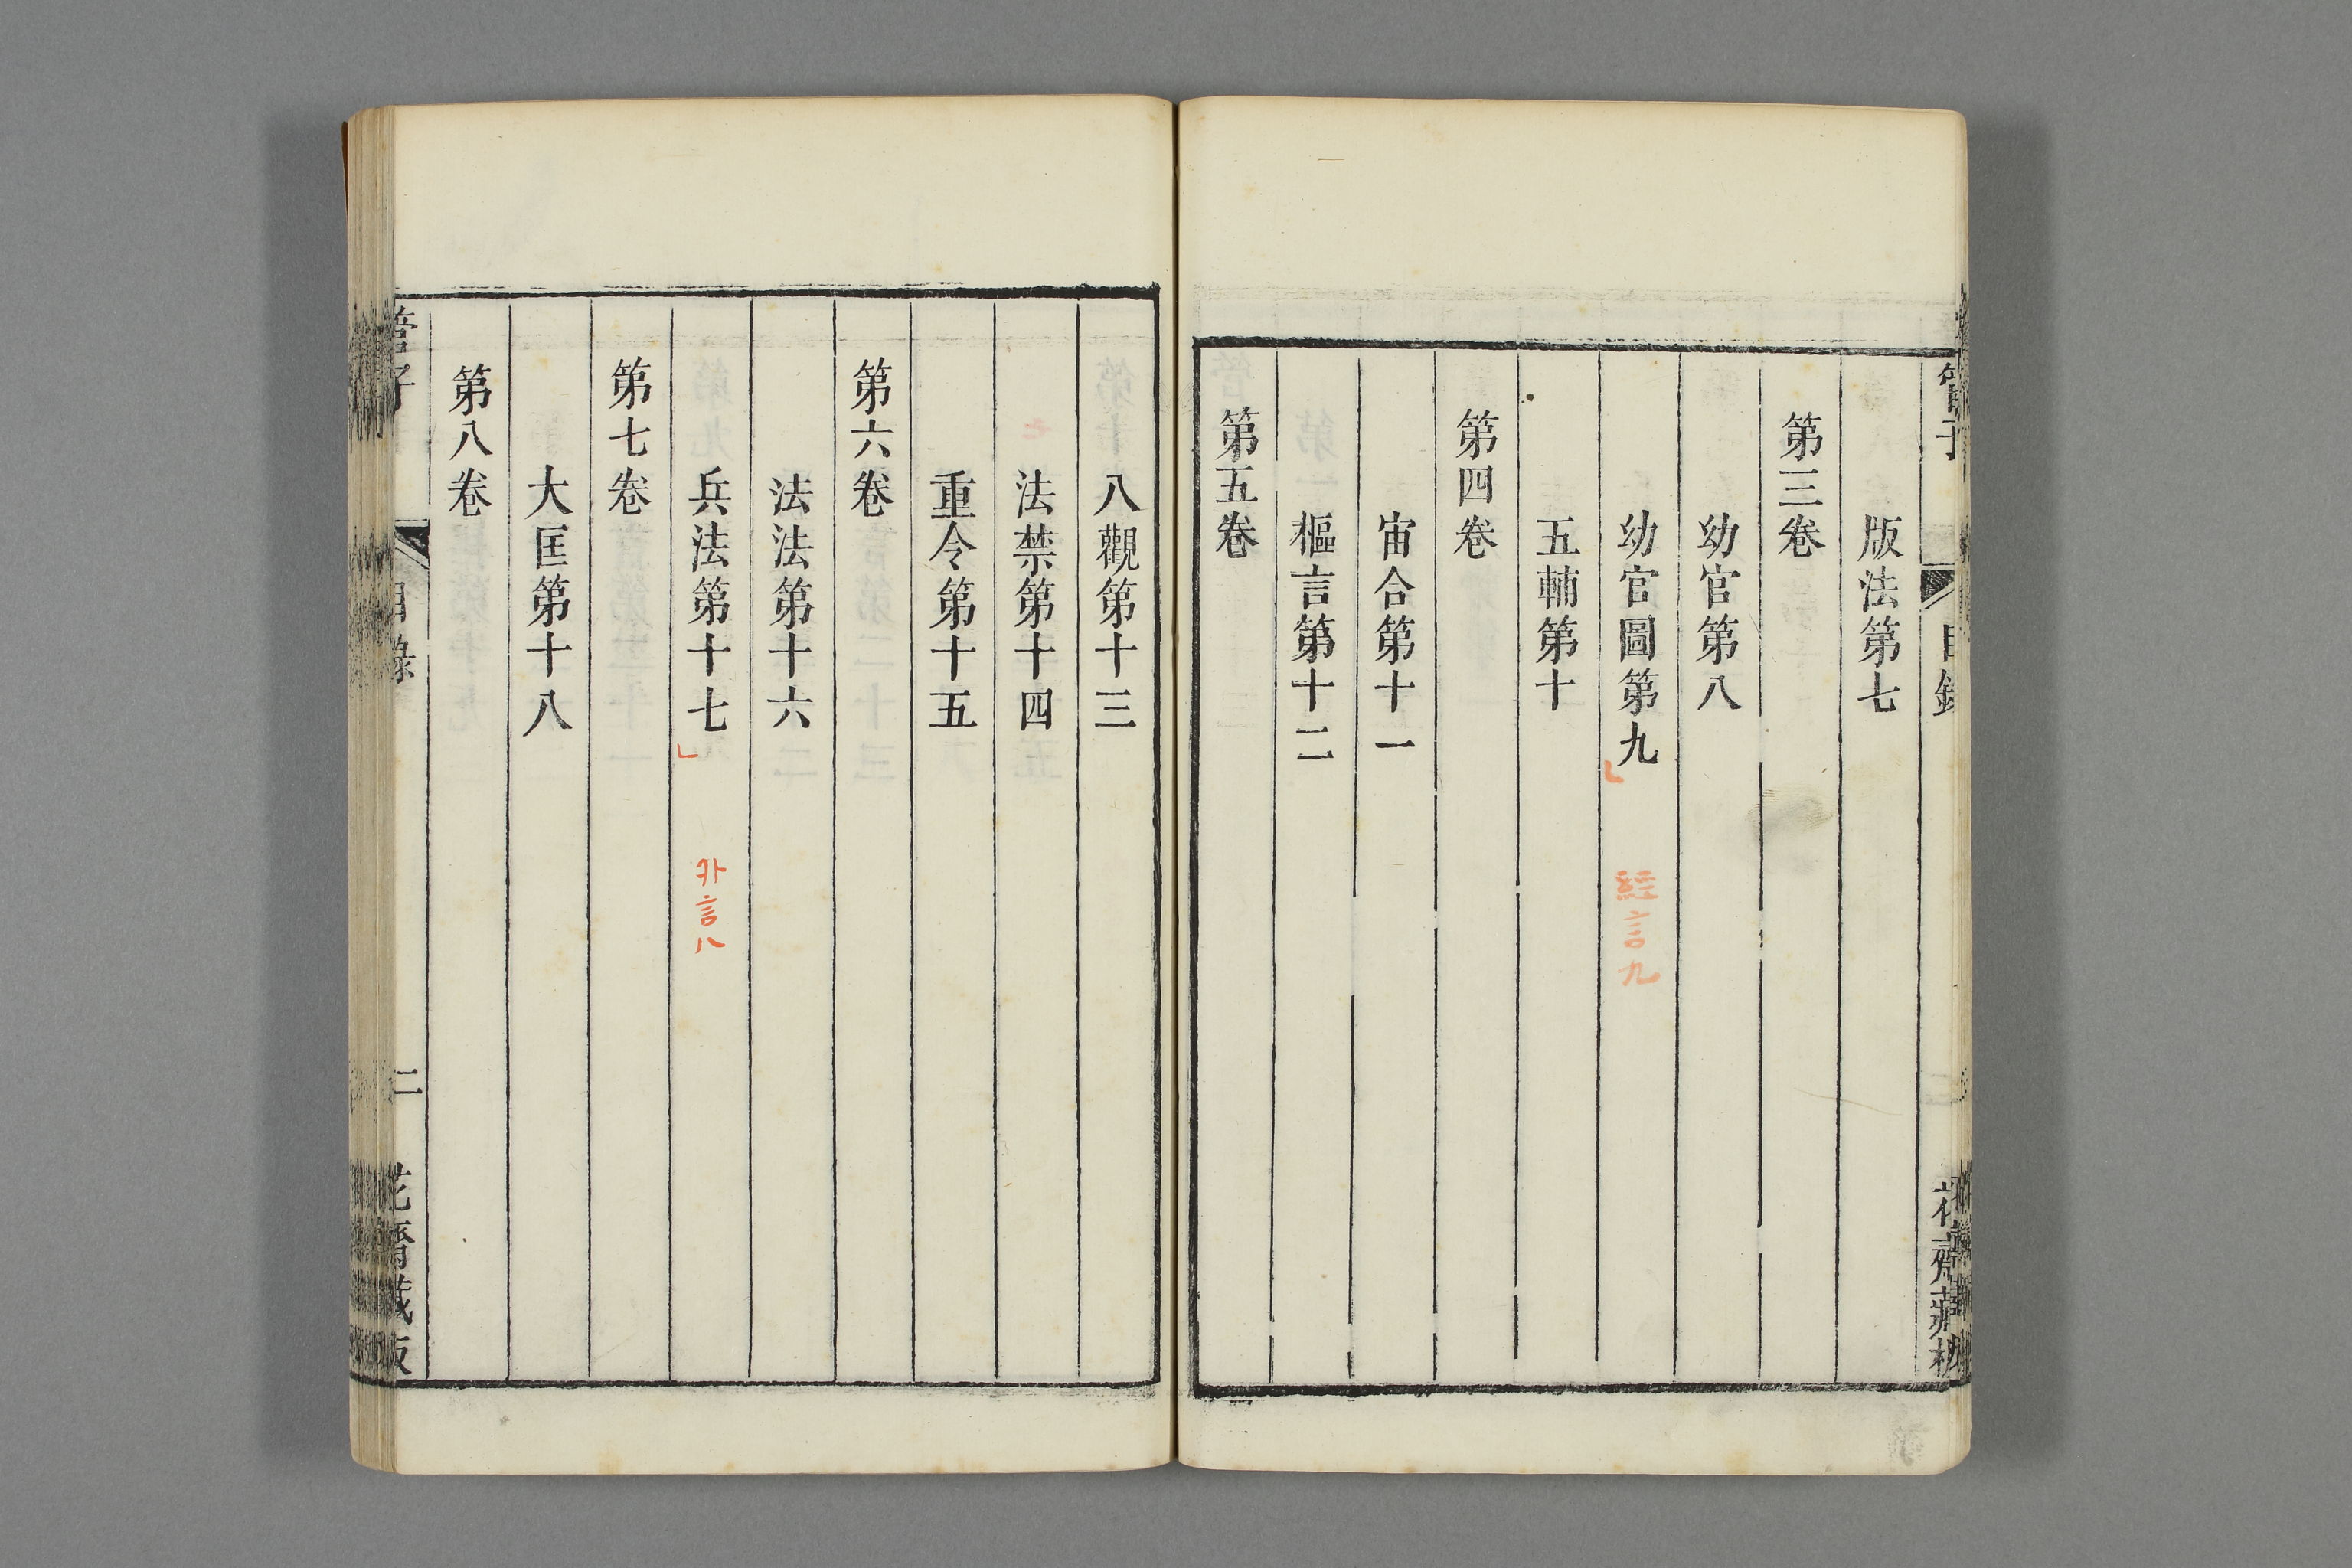 管子 目錄 花齋藏板
版法第七
第三卷
幼官第八
幼官圖第九」 經言九
五輔第十
第四卷
宙合第十一
樞言第十二
第五卷
八觀第十三
法禁第十四
重令第十五
第六卷
法法第十六
兵法第十七」 外言八
第七卷
大匡第十八
第八卷
管子 目錄 二 花齋藏板